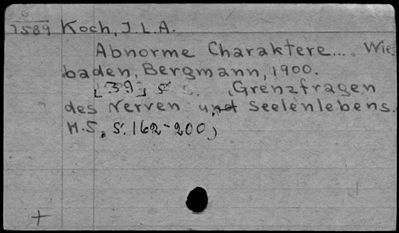 7589 Koch, J.L.A.
Abnorme Charaktere.... Wies
baden, Bergmann, 1900.
[39] s. (Grenzfragen
des Nerven und Seelenlebens.
H.5, S. 162-200)